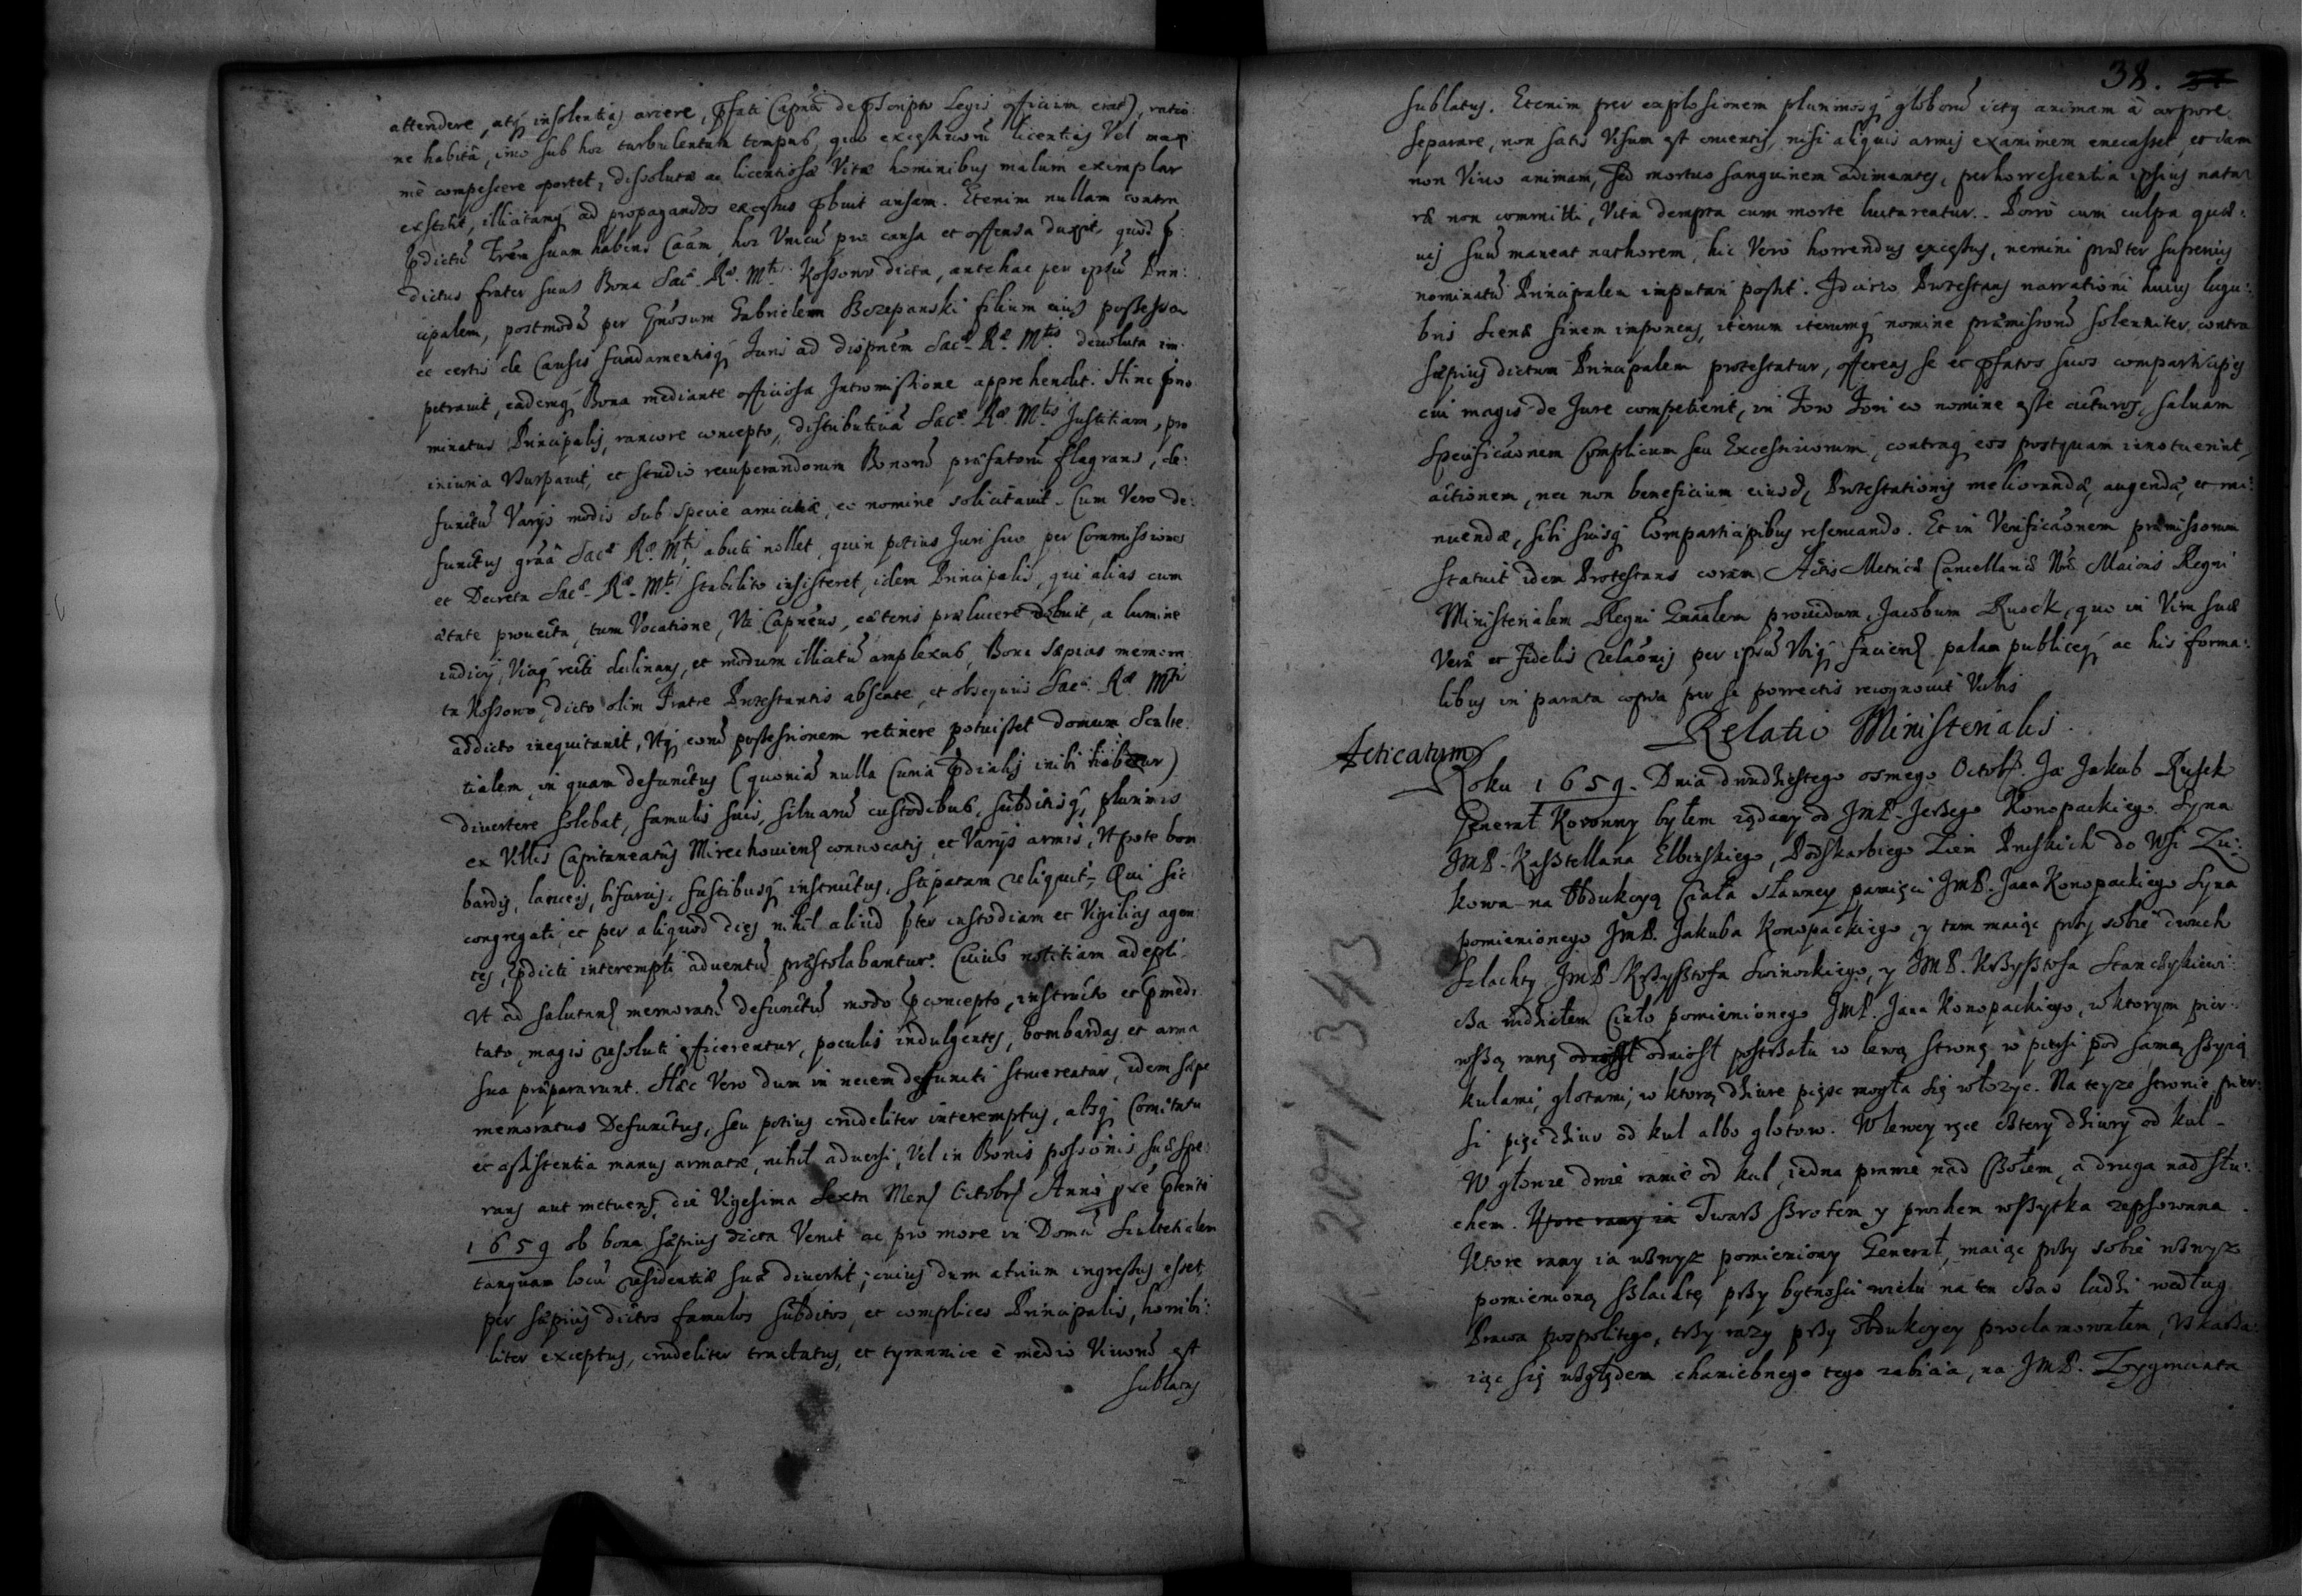 attendere, atq insolentias arcere, pfati Capnei de pscripto Legis officium erat), ratio:
ne habita, imo sub hoc turbulentum tempus, quo excessivorũ licentias vel maxi
mè compescere oportet, dissolutæ ac licentiosæ Vitæ hominibus malum exemplar
exstitit, illicitamq ad propagandos excessus pbuit ansam. Etenim nullam contra
pdictũ Frem suum habens Caam, hoc Unicũ pro causa et offensa duxit, quod p:
dictus frater suus Bona Sacæ Ræ Mtis Kossowo dicta, antehac per ipsũ Prin:
cipalem, postmodũ per Gnosum Gabrielem Szczepanski filium eius possessa
ex certis de Causis fundamentisq Juris ad dispnem Sacæ Ræ Mtis devoluta im:
petravit, eademq Bona mediante officiosa Intromissione apprehendit. Hinc pno
minatus Principalis, rancore concepto, distributivã Sacæ Ræ Mtis Justitiam, pro
iniuria Usurpavit, et studio recuperandorum Bonorũ præfatorũ flagrans, de:
functũ Varijs modis sub specie amicitiæ, eo nomine solicitavit. Cum Vero de:
functus grãa Sacæ Ræ Mtis abuti nollet, quin potius Juri suo per Commissiones
et Decreta Sacæ Ræ Mtis stabilito insisteret, idem Principalis, qui alias cum
ætate provecta, tum Vocatione, Uti Capneus, cæteris prælucere debuit, a lumine
iudicij, Viaq recti declinans, et modum illicitũ amplexus, Bona sæpius memora
ta Kossowo, dicto olim Fratre Protestantis absente, et obsequiis Sacæ Ræ Mtis
addicto inequitavit, Utq eorũ possessionem retinere potuisset domum Sculte
tialem, in quam defunctus (quoniã nulla Curia pdialis inibi habetur)
divertere solebat, famulis suis, silvarũ custodibus, subditisq, plurimis
ex Villis Capitaneatus Mirechoviens convocatis, et Varijs armis, Utpote bom
bardis, lanceis, bifurcis, fustibusq instructus, stipatam reliquit, Qui sic
congregati, et per aliquod dies nihil aliud pter custodiam et Vigilias agen
tes, pdicti interempti adventũ præstolabantur. Cuius notitiam adepti
Ut ad salutand memoratũ defunctũ modo pconcepto, instructo et pmedi
tato, magis resoluti efficerentur, poculis indulgentes, bombardas et arma
sua præpararunt. Hæc Vero dum in necem defuncti struerentur, idem sæpe
memoratus Defunctus, seu potius crudeliter interemptus, absq Comitatu
et assistentia manus armatæ, nihil adversi, Vel in Bonis possonis suæ spe
rans aut metuens, die Vigesima Sexta Mens Octobr Anni
1659 ob bona sæpius dicta Venit ac pro more in Domũ Scultetialem
tanquam locũ residentiæ suæ divertit; cuius dum atrium ingressus esset,
per sæpius dictos famulos subditos, et complices Principalis, horribi:
liter exceptus, crudeliter tractatus, et tyrannice è medio Vivorũ est
sublatus
38.
sublatus. Etenim per explosionem plurimosq globorũ ictq animam à corpore
separare, non satis Visum est cruentis, nisi aliquis armis exanimem enecasset, et dum
non Vivo animam, sed mortuo sanguinem adimentes, perhorrescentia ipsius natu
ræ non committi, Vita dempta cum morte luctarentur. Porro cum culpa quæ:
vis suũ maneat authorem, hic Vero horrendus excessus, nemini præter superius
nominatũ Principalem imputari possit. Idcirco Protestans narrationi huius lugu:
bris scenæ finem imponens, iterum iterumq nomine præmissorũ solenniter contra
sæpius dictum Principalem protestatur, offerens se et pfatos suos comparticipes
cui magis de Jure competierit, in Foro Fori eo nomine esse acturos, salvam
Specificãonem Complicum seu Excessivorum, contraq eos postquam innotuerint,
actionem, nec non beneficium eiusd Protestationis meliorandæ, augendæ, et mi:
nuendæ, sibi suisq Comparticipibus reservando. Et in Verificãonem præmissorum
statuit idem Protestans coram Actis Metrices Cancellariæ Nræ Maioris Regni
Ministerialem Regni Gnralem providum, Jacobum Rusek, quo in Vim suæ
Veræ et Fidelis relaõnis per ipsũ Ubiq faciend palam publiceq ac his forma:
libus in parata copia per se porrectis recognovit Verbis
Relatio Ministerialis.
Acticatum
Roku 1659. Dnia dwudziestego osmego Octobr. Ja Jakub Rusek
Generał Koronny byłem ządany od JMP. Jerzego Konopackiego Syna
JMP. Kasztellana Elbinskiego, Podskarbiego Ziem Pruskich do Wsi Zu:
kowa na Obdukcyą Ciała sławney pamięci JMP. Jana Konopackiego Syna
pomienionego JMP. Jakuba Konopackiego, y tam maiąc przy sobie dwuch
Szlachty JMP. Krzysztofa Swinarskiego, y JMP. Krzysztofa Stanczykiewi:
cza widziałem Ciało pomienionego JMP. Jana Konopackiego, w ktorym pier
wszą ranę odniosł odniosł postrzału w lewą stronę w piersi pod samą szyią
kulami, glotami, w ktorą dziure pięsc mogła się włozyc. Na teyze stronie pier:
si pięc dziur od kul albo glotow. W lewey ręce cztery dziury od kul.
W głowie dwie ranie od kul, iedna prawie nad czołem, a druga nad słu:
chem. Ktore rany ia Twarz szrotem y prochem wszytka zepsowana.
Ktore rany ia wzwyz pomieniony Generał, maiąc przy sobie wzwyz
pomienioną szlachtę przy bytnosci wielu na ten czas ludzi według
Prawa pospolitego, trzy razy przy obdukcyey proclamowałem, Uskarza:
iąc się względem chaniebnego tego zabicia, na JMP. Zygmunta
K 207/343